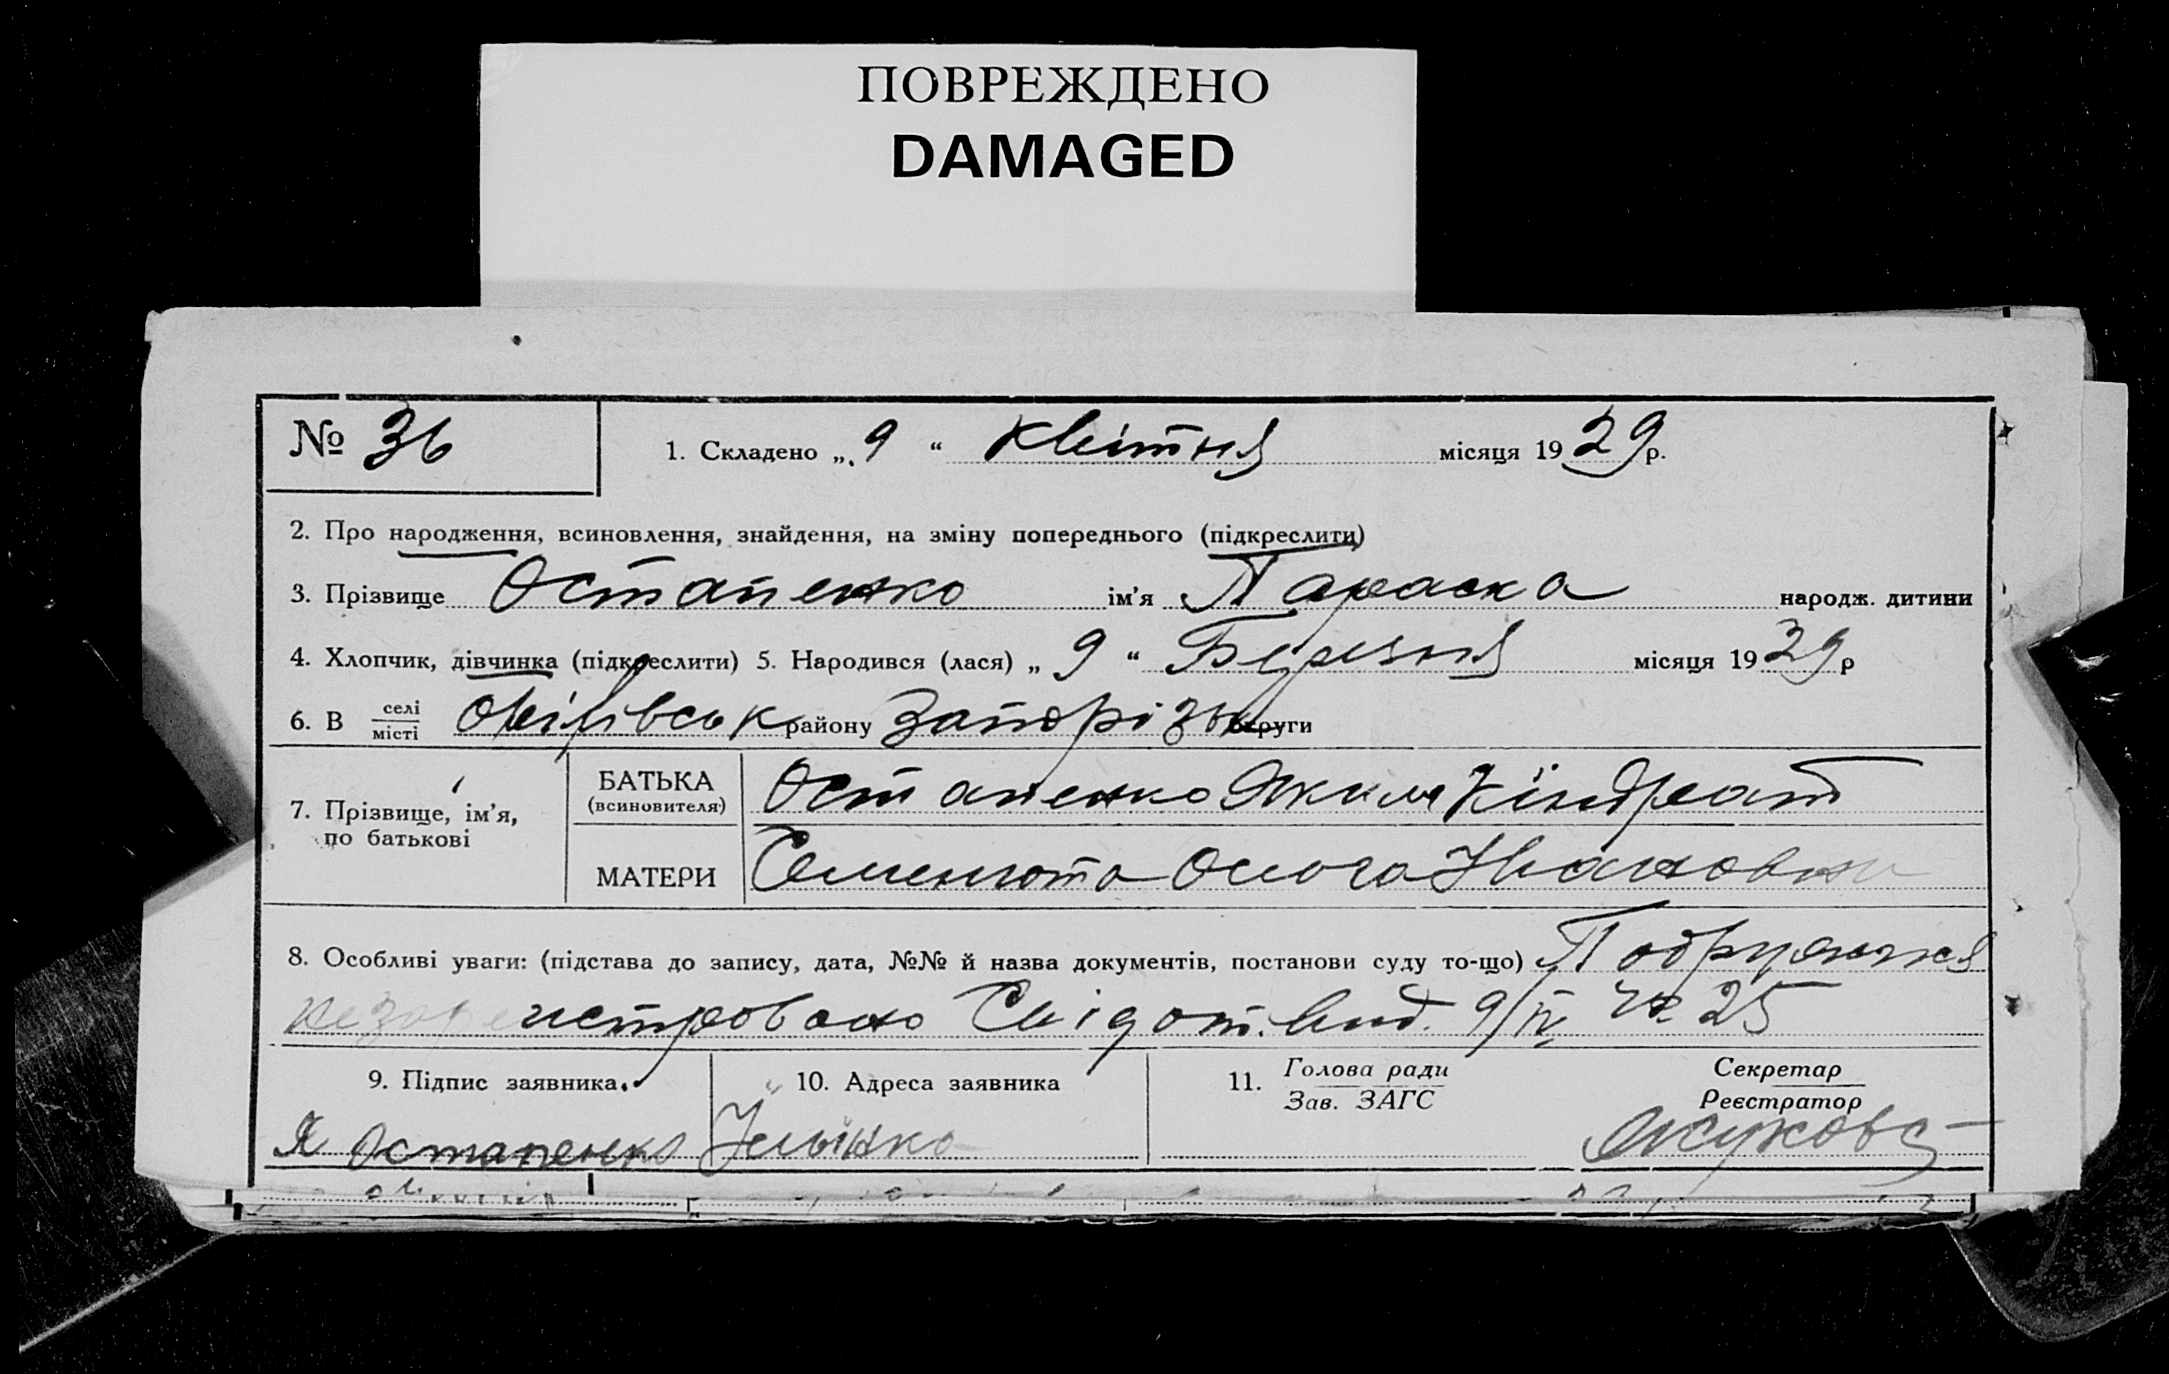 ПОВРЕЖДЕНО
DAMAGED
№ 36
1. Складено „ 9 “ Квітня місяця 1929 р.
2. Про народження, всиновлення, знайдення, на зміну попереднього (підкреслити)
3. Прізвище Остапенко ім'я Параска народж. дитини
4. Хлопчик, дівчинка (підкреслити) 5. Народився (лася) „ 9 “ Березня місяця 1929 р
6. В селі місті району Запорізьк округи
7. Прізвище, ім'я, по батькові
БАТЬКА (всиновителя) Остапенко Яким Кіндрат
МАТЕРИ Семенюта Ольга Ивановна
8. Особливі уваги: (підстава до запису, дата, №№ й назва документів, постанови суду то-що) Подружжя
незарегистровано Свідот. вид. 9/IV № 25
9. Підпис заявника 10. Адреса заявника 11. Голова ради Зав. ЗАГС Секретар Реєстратор
Я Остапенко